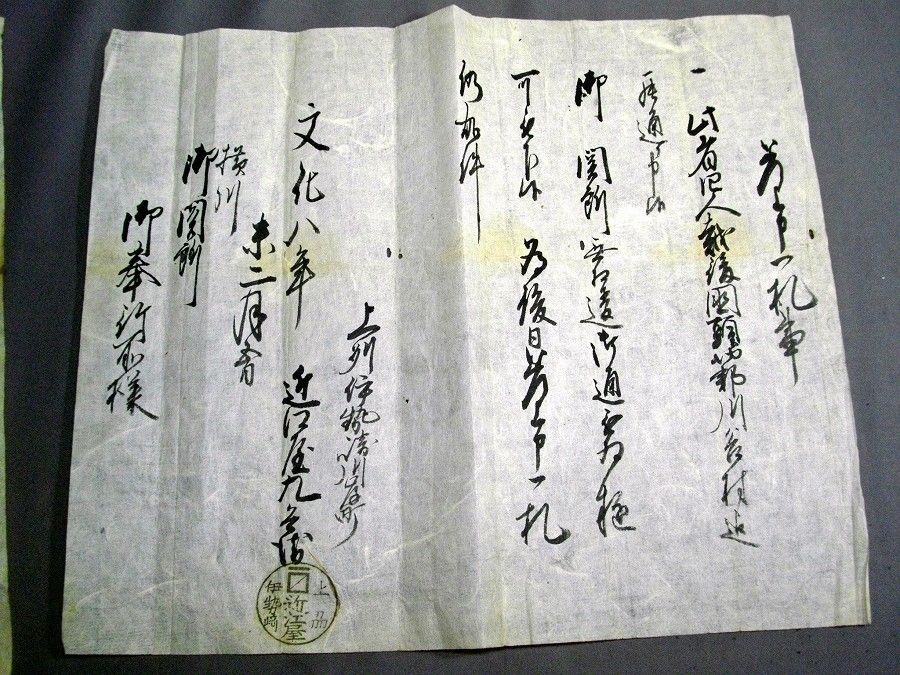 差上申一札事
一 此者四人越後国頸城郡川谷村迄
罷通申候
御関所無相違御通被為遊
可被下候 為後日差上申一札
仍如件
上州伊勢崎
文化八年 近江屋九兵衛
未二月
横川
御関所
御奉行所様
上州
近江屋
伊勢崎